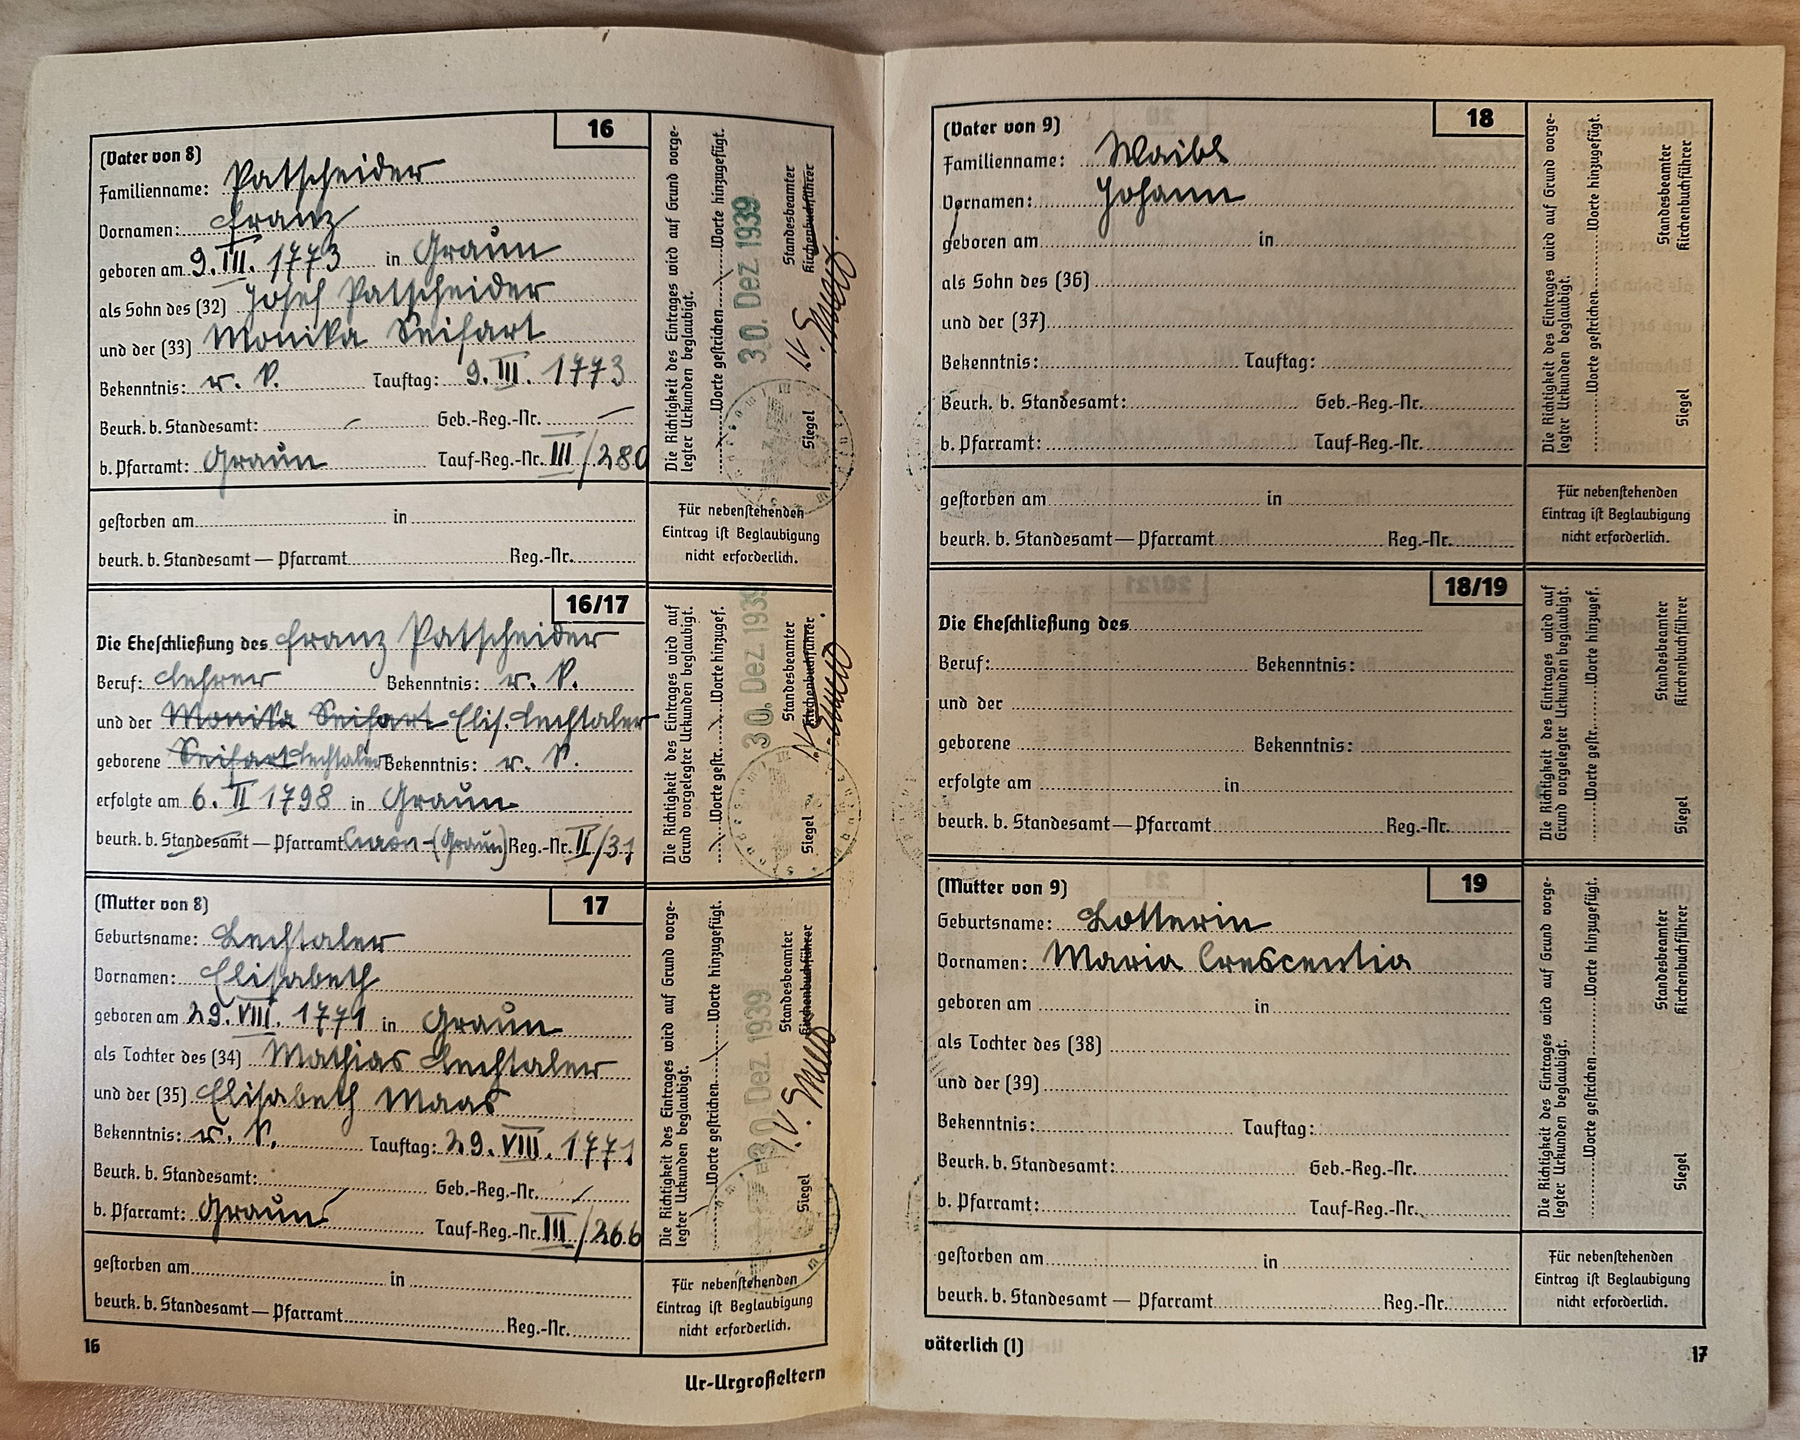 16
(Vater von 8)
Familienname: Patscheider
Vornamen: Franz
geboren am 9. III. 1773 in Graun
als Sohn des (32) Josef Patscheider
und der (33) Monika Seifart
Bekenntnis: r. k. Tauftag: 9. III. 1773
Beurk. b. Standesamt: — Geb.-Reg.-Nr. —
b. Pfarramt: Graun Tauf-Reg.-Nr. III/280
Die Richtigkeit des Eintrages wird auf Grund vorge-
legter Urkunden beglaubigt.
Worte gestrichen Worte hinzugefügt.
30. Dez. 1939
Standesbeamter
Kirchenbuchführer
Siegel
gestorben am in
beurk. b. Standesamt — Pfarramt Reg.-Nr.
Für nebenstehenden
Eintrag ist Beglaubigung
nicht erforderlich.
16/17
Die Eheschließung des Franz Patscheider
Beruf: Lehrer Bekenntnis: r. k.
und der Monika Seifart Elis. Lechtaler
geborene Seifart Lechtaler Bekenntnis: r. k.
erfolgte am 6. II 1798 in Graun
beurk. b. Standesamt — Pfarramt (Graun) Reg.-Nr. II/31
Die Richtigkeit des Eintrages wird auf
Grund vorgelegter Urkunden beglaubigt.
Worte gestr. Worte hinzugef.
30. Dez. 1939
Standesbeamter
Kirchenbuchführer
Siegel
17
(Mutter von 8)
Geburtsname: Lechtaler
Vornamen: Elisabeth
geboren am 29. VIII. 1771 in Graun
als Tochter des (34) Mathias Lechtaler
und der (35) Elisabeth Maas
Bekenntnis: r. k. Tauftag: 29. VIII. 1771
Beurk. b. Standesamt: Geb.-Reg.-Nr.
b. Pfarramt: Graun Tauf-Reg.-Nr. III/266
Die Richtigkeit des Eintrages wird auf Grund vorge-
legter Urkunden beglaubigt.
Worte gestrichen Worte hinzugefügt.
30. Dez. 1939
Standesbeamter
Kirchenbuchführer
I.V.
Siegel
gestorben am in
beurk. b. Standesamt — Pfarramt Reg.-Nr.
Für nebenstehenden
Eintrag ist Beglaubigung
nicht erforderlich.
16
Ur-Urgroßeltern
18
(Vater von 9)
Familienname: Waibl
Vornamen: Johann
geboren am in
als Sohn des (36)
und der (37)
Bekenntnis: Tauftag:
Beurk. b. Standesamt: Geb.-Reg.-Nr.
b. Pfarramt: Tauf-Reg.-Nr.
Die Richtigkeit des Eintrages wird auf Grund vorge-
legter Urkunden beglaubigt.
Worte gestrichen Worte hinzugefügt.
Standesbeamter
Kirchenbuchführer
Siegel
gestorben am in
beurk. b. Standesamt — Pfarramt Reg.-Nr.
Für nebenstehenden
Eintrag ist Beglaubigung
nicht erforderlich.
18/19
Die Eheschließung des
Beruf: Bekenntnis:
und der
geborene Bekenntnis:
erfolgte am in
beurk. b. Standesamt — Pfarramt Reg.-Nr.
Die Richtigkeit des Eintrages wird auf
Grund vorgelegter Urkunden beglaubigt.
Worte gestr. Worte hinzugef.
Standesbeamter
Kirchenbuchführer
Siegel
19
(Mutter von 9)
Geburtsname: Lotterin
Vornamen: Maria Crescentia
geboren am in
als Tochter des (38)
und der (39)
Bekenntnis: Tauftag:
Beurk. b. Standesamt: Geb.-Reg.-Nr.
b. Pfarramt: Tauf-Reg.-Nr.
Die Richtigkeit des Eintrages wird auf Grund vorge-
legter Urkunden beglaubigt.
Worte gestrichen Worte hinzugefügt.
Standesbeamter
Kirchenbuchführer
Siegel
gestorben am in
beurk. b. Standesamt — Pfarramt Reg.-Nr.
Für nebenstehenden
Eintrag ist Beglaubigung
nicht erforderlich.
väterlich (1)
17